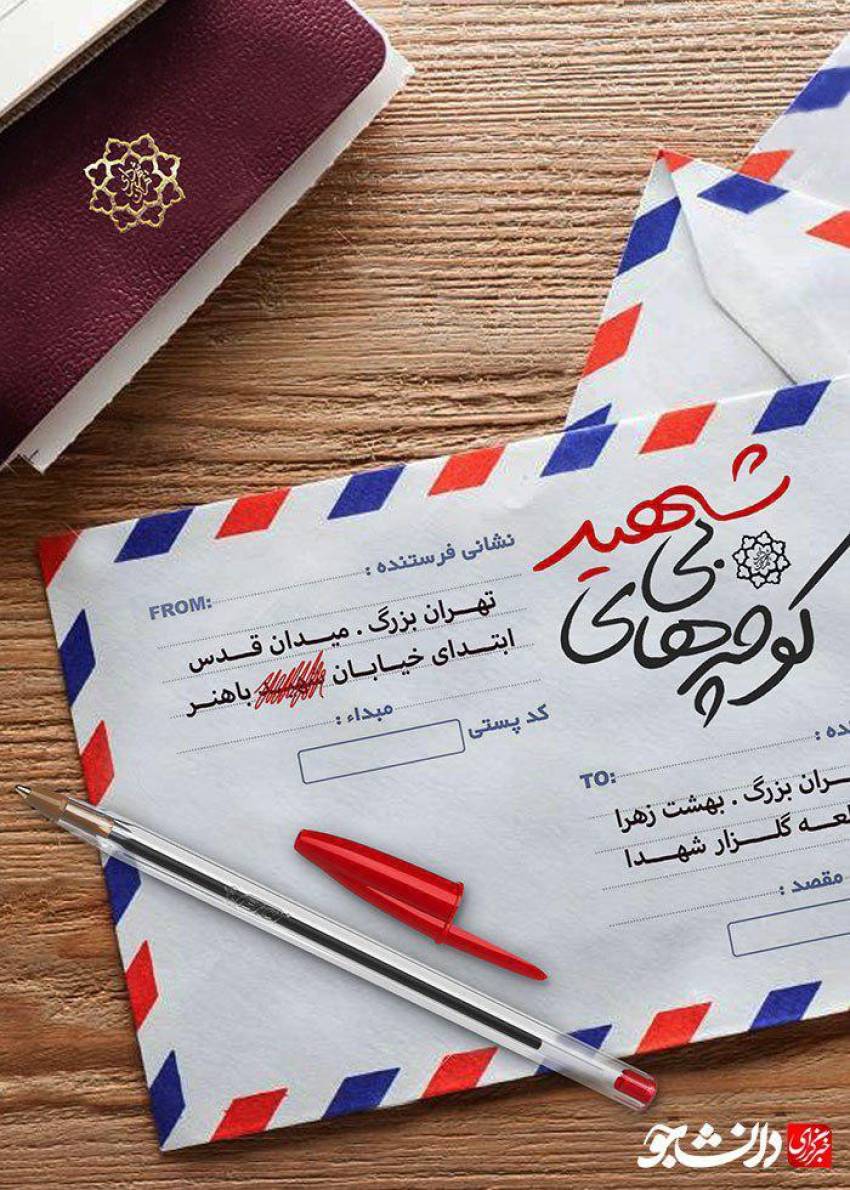 شهید
بی
کوچه‌های
نشانی فرستنده :
FROM:
تهران بزرگ . میدان قدس
ابتدای خیابان شهید باهنر
کد پستی مبداء :
نده :
TO:
ران بزرگ . بهشت زهرا
طعه گلزار شهدا
مقصد :
خبرگزاری دانشجو